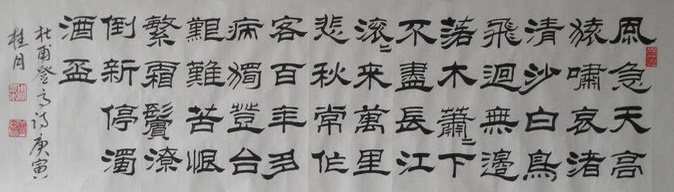 風急天高
猿嘯哀渚
清沙白鳥
飛迴無邊
落木蕭〻下
不盡長江
滾〻來萬里
悲秋常作
客百年多
病獨登台
艱難苦恨
繁霜鬢潦
倒新停濁
酒盃
杜甫登高诗庚寅
桂月